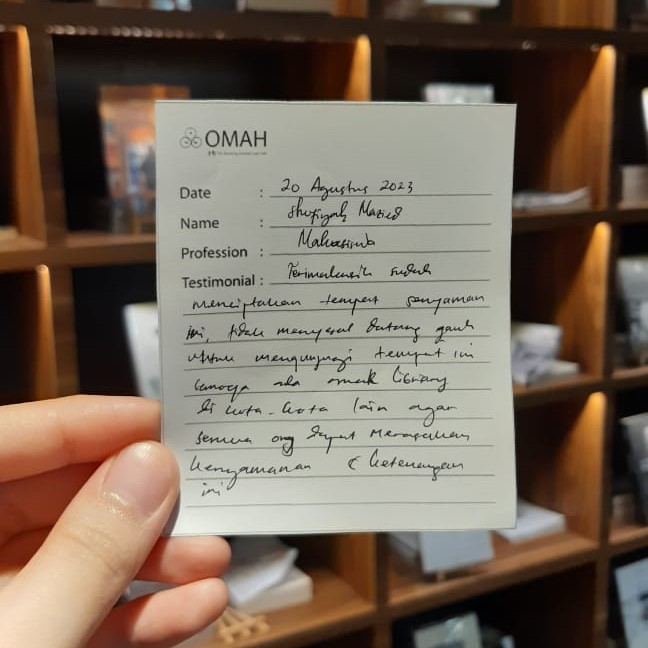 OMAH
Date : 20 Agustus 2023
Name : Shofiyah
Profession : Mahasiswa
Testimonial : Terimakasih sudah
menciptakan tempat senyaman
ini, tidak menyesal datang jauh
untuk mengunjungi tempat ini
semoga ada omah library
di kota-kota lain agar
semua org dapat merasakan
kenyamanan & ketenangan
ini